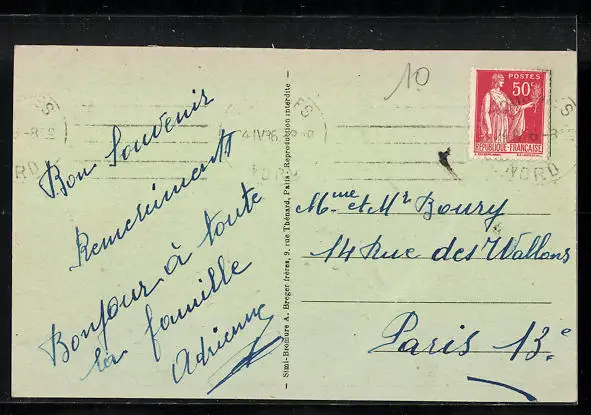 Bon Souvenir
Remerciements
Bonjour à toute
la famille
Adrienne
Simi-Bromure A. Breger frères, 9, rue Thénard, Paris - Reproduction interdite -
10
POSTES
50c
REPUBLIQUE-FRANÇAISE
NORD
Mme et Mr Boury
14 Rue des Wallons
Paris 13e